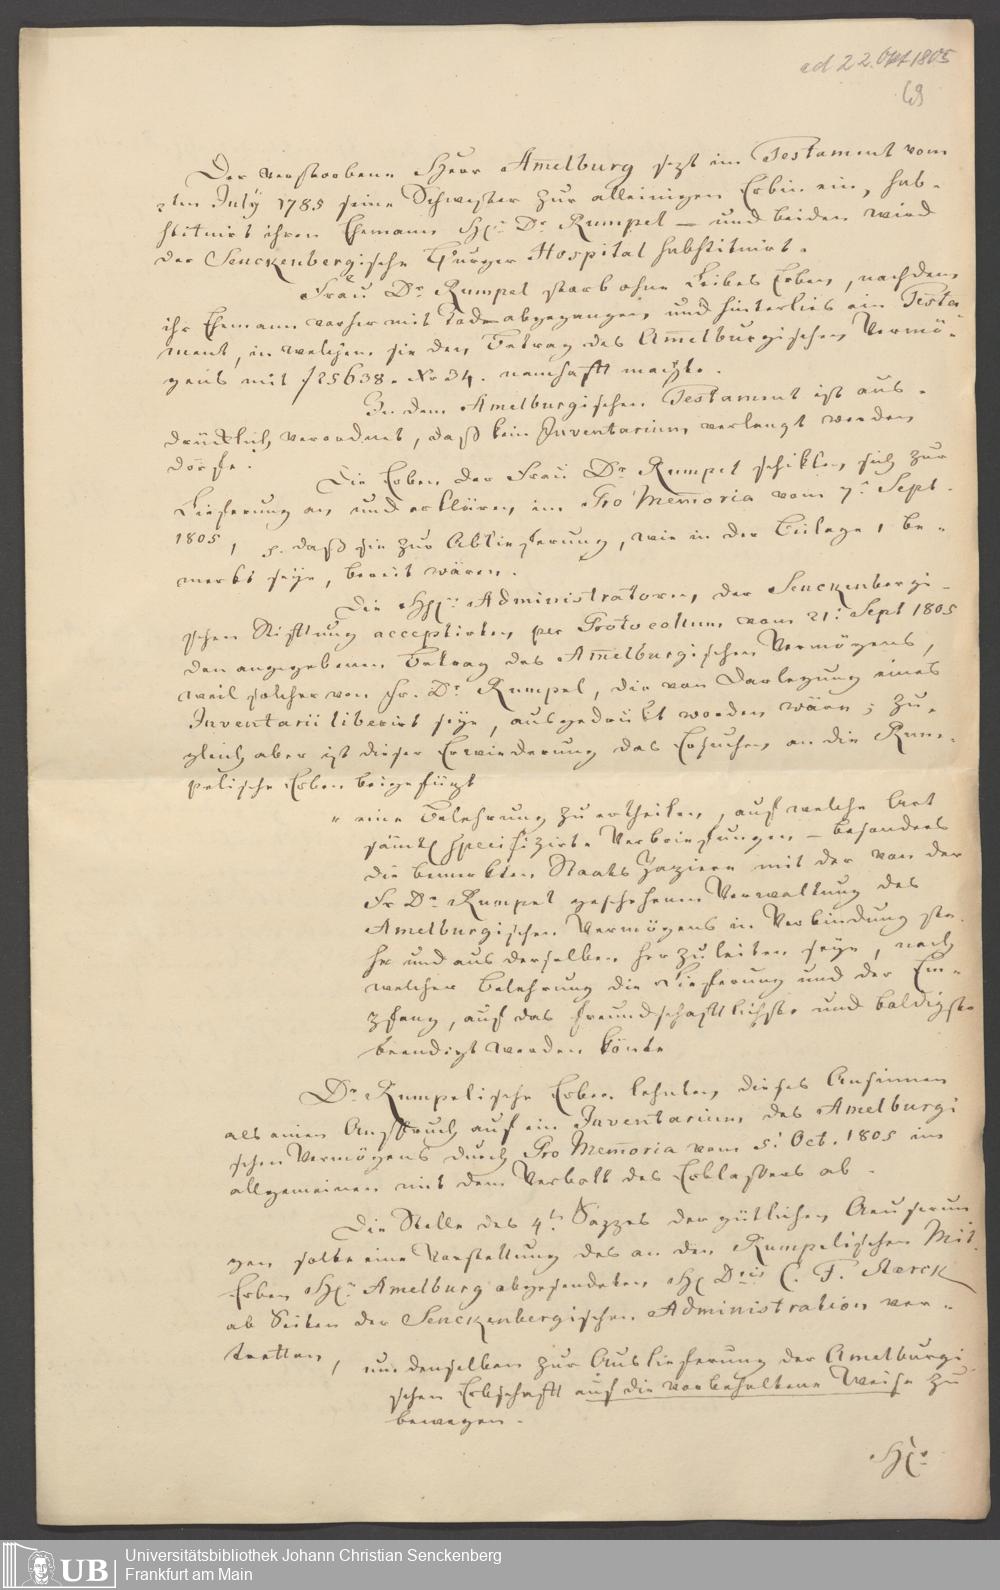 ad 22. Okt 1805
69
Der verstorbene Herr Amelburg sezt im Testament vom
2ten July 1785 seine Schwester zur alleinigen Erbin ein, sub-
stituirt ihren Ehemann H. Dr. Rumpel — und beiden wird
das Senckenbergische Burger Hospital substituirt.
Frau Dr. Rumpel starb ohne Leibes Erben, nachdem
ihr Ehemann vorher mit Tode abgegangen, und hinterlies ein Testa
ment, in welchem sie den Betrag des Amelburgischen Vermö-
gens mit f 25638. Xr 34. namhafft machte.
In dem Amelburgischen Testament ist aus-
drücklich verordnet, daß kein Inventarium verlangt werden
dörfe.
Die Erben der Frau Dr. Rumpel schikten sich zur
Lieferung an, und erklären im Pro Memoria vom 7. Sept.
1805, daß sie zur Ablieferung, wie in der Beilage, be-
merkt seye, bereit wären.
Die HH. Administratoren der Senckenbergi-
schen Stifftung acceptirten per Protocollum vom 21. Sept 1805
den angegebenen Betrag des Amelburgischen Vermögens,
weil solcher von Fr. Dr. Rumpel, die von Darlegung eines
Inventarii liberirt seye, ausgedrückt worden wäre; zu-
gleich aber ist dieser Erwiederung das Ersuchen an die Rum-
pelische Erben beigefügt
" eine Belehrung zu ertheilen, auf welche Art
sämtl. specifizirte Verbriefungen — besonders
die bemerkten Staats Papiere mit der von der
Fr Dr. Rumpel geschehenen Verwaltung des
Amelburgischen Vermögens in Verbindung ste-
he und aus derselben herzuleiten seye, nach
welcher Belehrung die Lieferung und der Em-
pfang, auf das freundschafftlichste und baldigste
beendigt werden könte
Dr. Rumpelische Erben lehnten dieses Ansinnen
als einen Anspruch auf ein Inventarium des Amelburgi
schen Vermögens durch Pro Memoria vom 5. Oct. 1805 im
allgemeinen mit dem Verbott des Erblassers ab.
Die Stelle des 4ten Sazzes der gütlichen Aeuserun
gen solte eine Vorstellung des an den Rumpelischen Mit-
Erben H. Amelburg abgesendeten H. Dris C. F. Starck
ab Seiten der Senckenbergischen Administration ver-
tretten,
um denselben zur Auslieferung der Amelburgi
schen Erbschafft auf die vorbehaltene Weise zu
bewegen.
H.
UB
Universitätsbibliothek Johann Christian Senckenberg
Frankfurt am Main